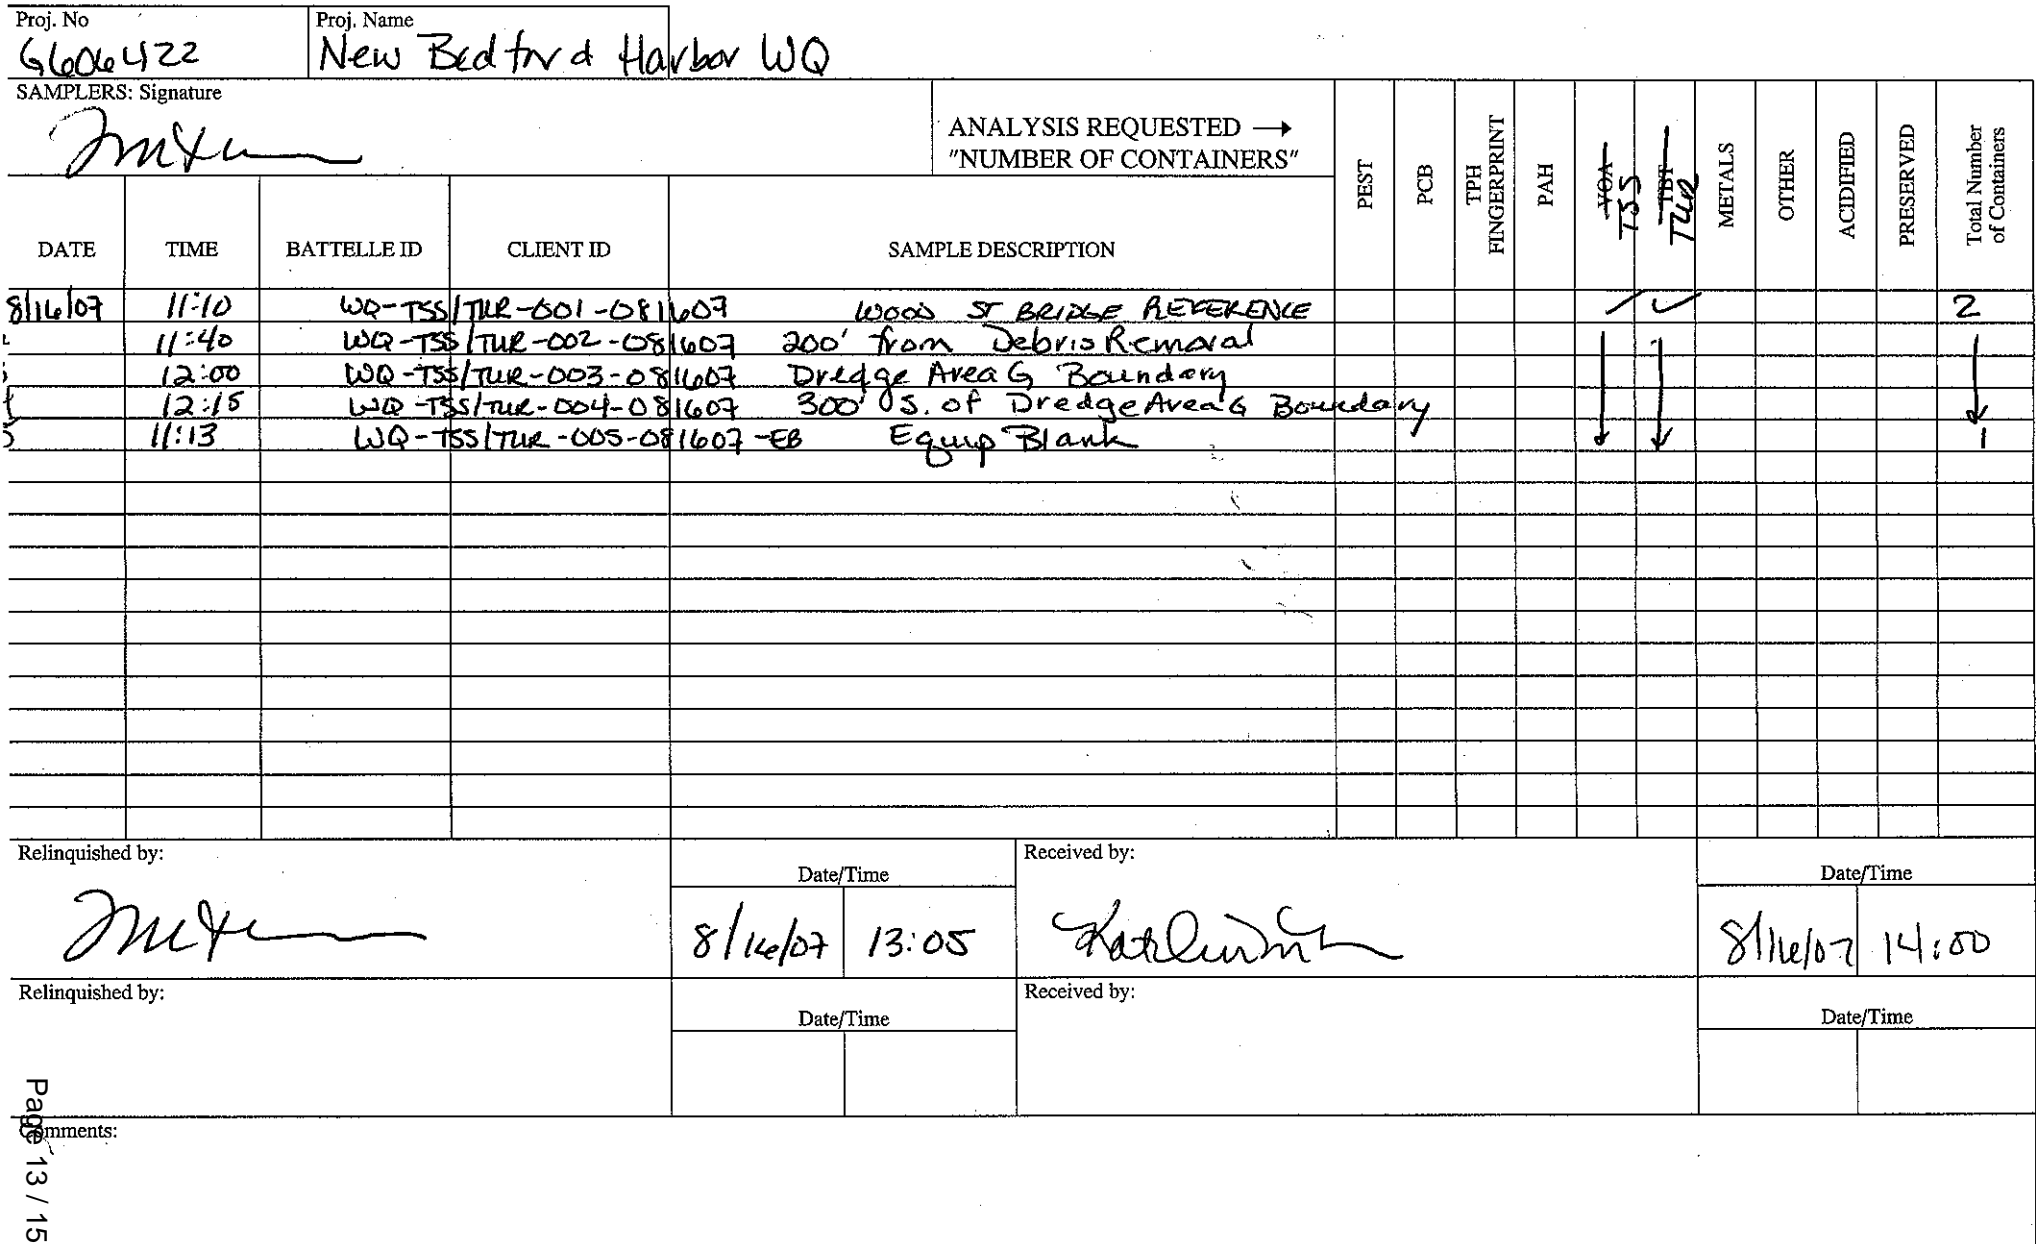 Proj. No
G606422
Proj. Name
New Bedford Harbor WQ
SAMPLERS: Signature
ANALYSIS REQUESTED →
"NUMBER OF CONTAINERS"
DATE
TIME
BATTELLE ID
CLIENT ID
SAMPLE DESCRIPTION
PEST
PCB
TPH
FINGERPRINT
PAH
VOA
TSS
TBT
TUR
METALS
OTHER
ACIDIFIED
PRESERVED
Total Number
of Containers
8/16/07 11:10 WQ-TSS/TUR-001-081607 WOOD ST BRIDGE REFERENCE ✓ ✓ 2
11:40 WQ-TSS/TUR-002-081607 200' from Debris Removal
12:00 WQ-TSS/TUR-003-081607 Dredge Area G Boundary
12:15 WQ-TSS/TUR-004-081607 300' S. of Dredge Area G Boundary
11:13 WQ-TSS/TUR-005-081607-EB Equip Blank 1
Relinquished by:
Date/Time
8/16/07 13:05
Received by:
Date/Time
8/16/07 14:00
Relinquished by:
Date/Time
Received by:
Date/Time
Comments:
Page 13 / 15